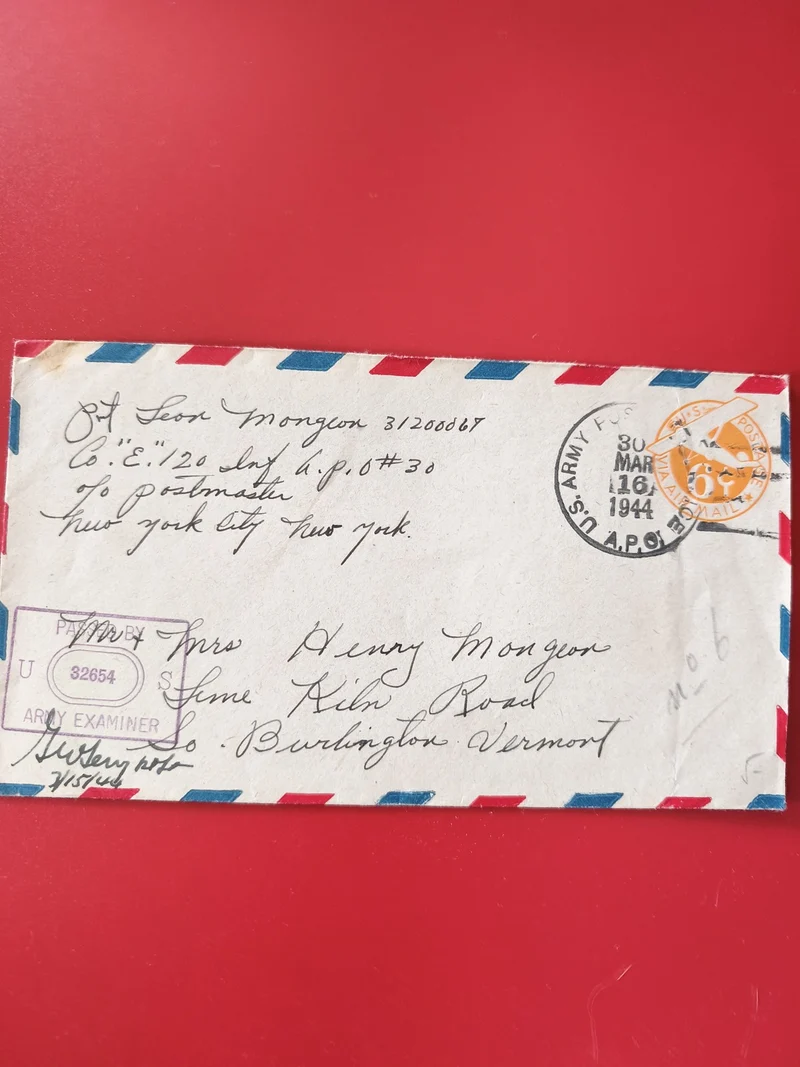 Pvt Leon Mongeon 31200067
Co. "E." 120 Inf A.P.O #30
c/o postmaster
New York City New York.
U.S. ARMY POS
30
MAR
16
1944
A.P.O.
U.S. POSTAGE
6¢
VIA AIR MAIL
PASSED BY
U 32654 S
ARMY EXAMINER
Mr + Mrs Henry Mongeon
Lime Kiln Road
So. Burlington Vermont
No. 6